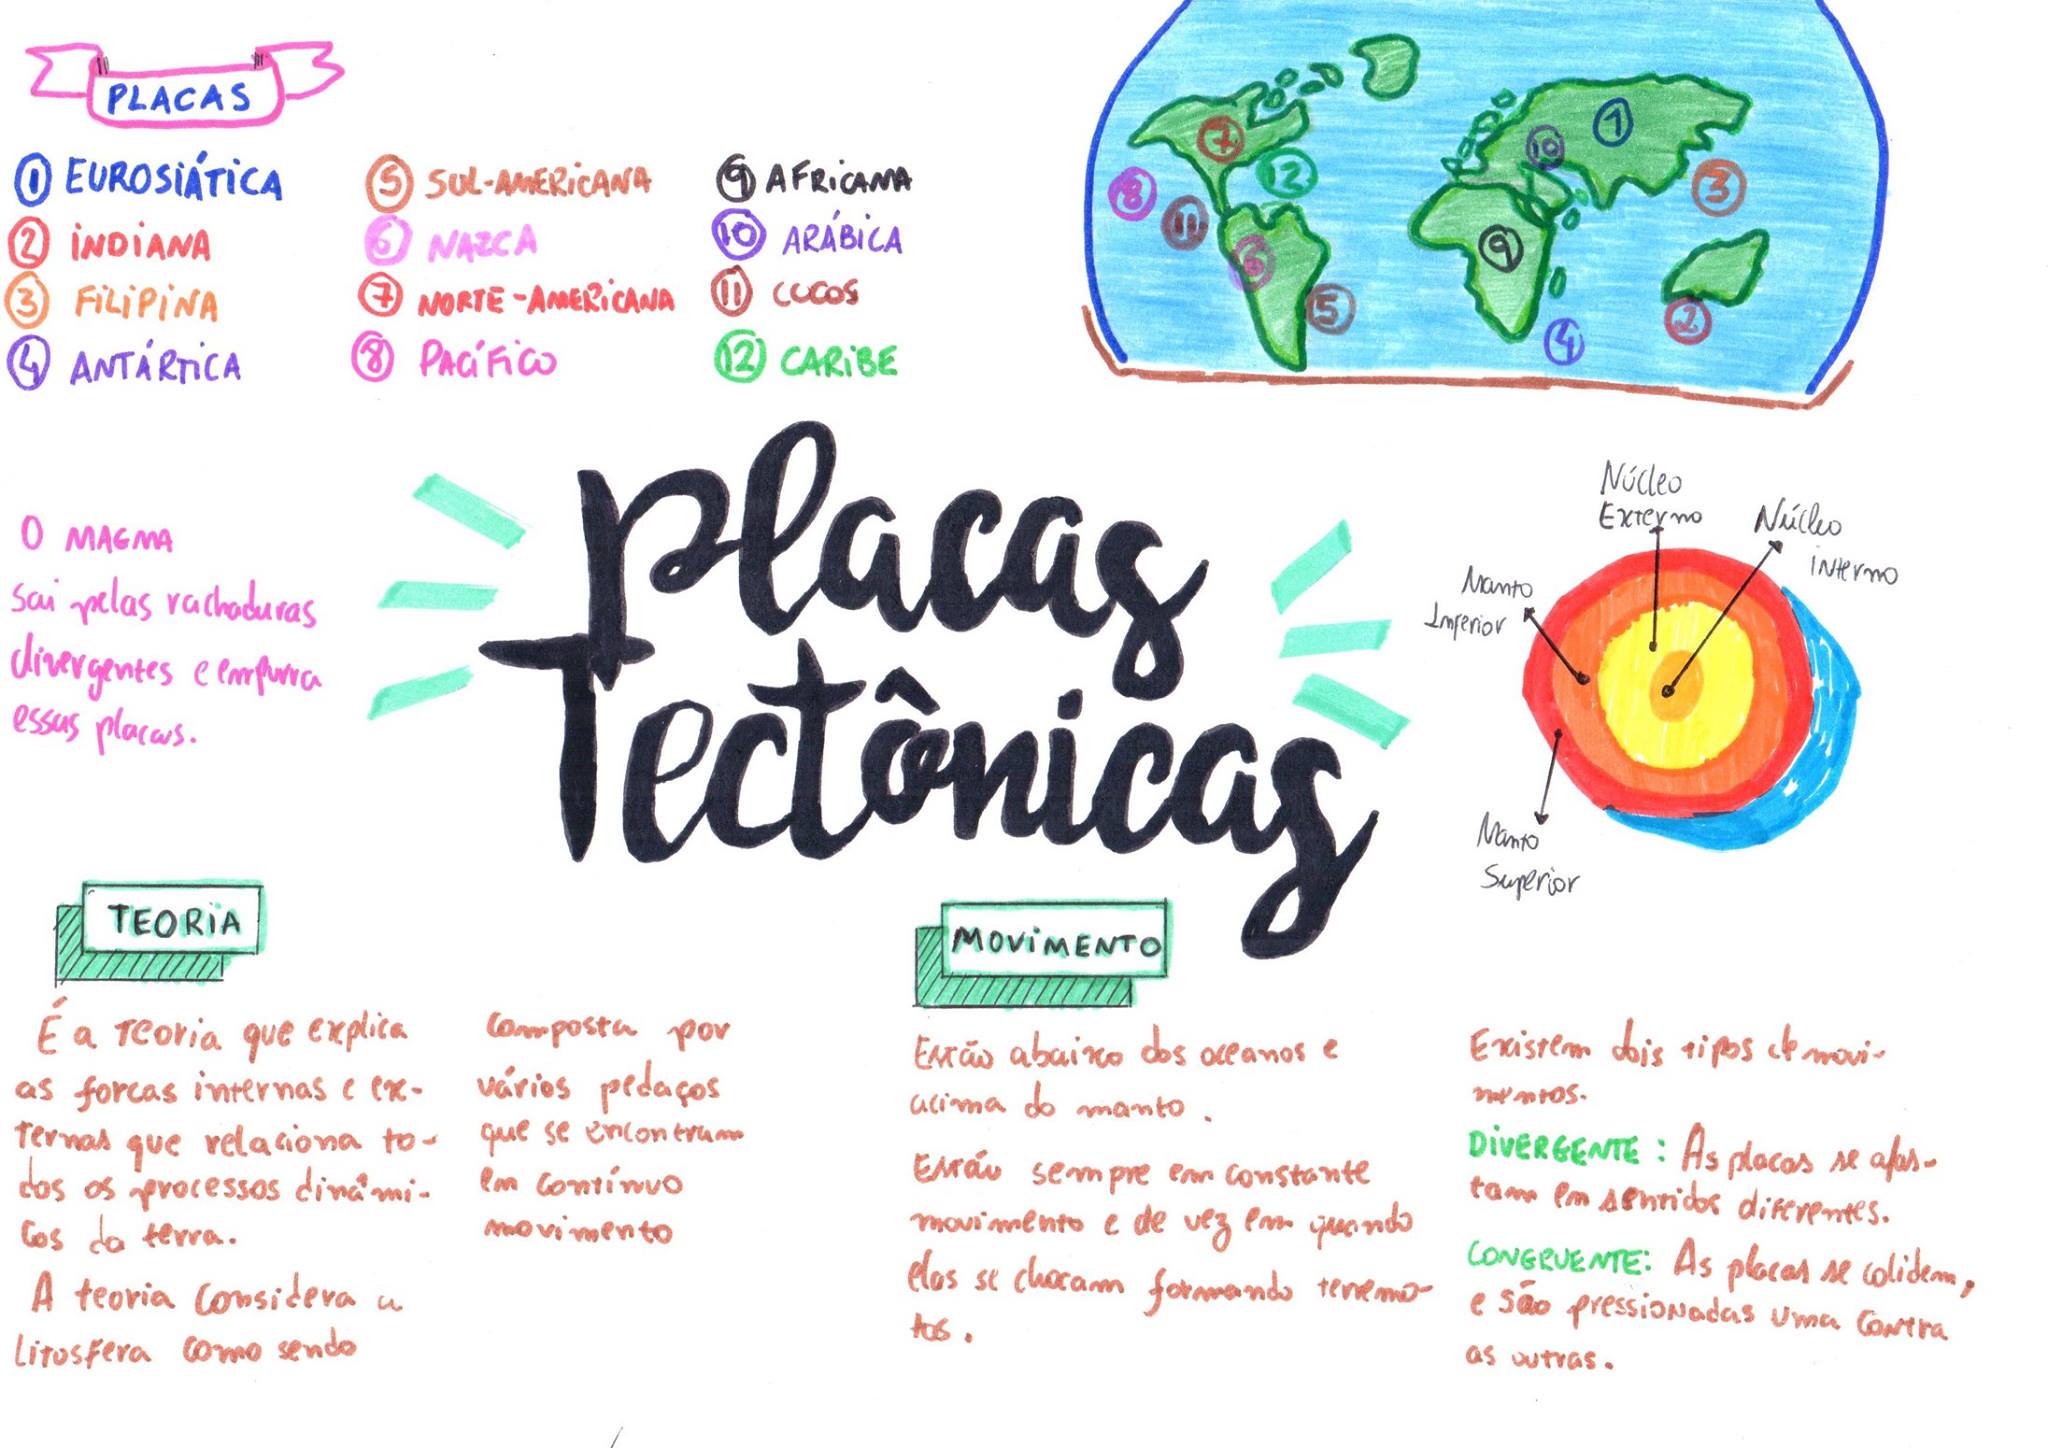 PLACAS
1 EUROSIÁTICA
2 INDIANA
3 FILIPINA
4 ANTÁRTICA
5 SUL-AMERICANA
6 NAZCA
7 NORTE-AMERICANA
8 PACÍFICO
9 AFRICANA
10 ARÁBICA
11 COCOS
12 CARIBE
7
12
8
11
6
5
10
1
3
9
4
2
Placas
Tectônicas
O MAGMA
sai pelas rachaduras
divergentes e empurra
essas placas.
Núcleo
Externo
Núcleo
interno
Manto
Inferior
Manto
Superior
TEORIA
É a Teoria que explica
as forcas internas e ex-
ternas que relaciona to-
dos os processos dinâmi-
cos da terra.
A teoria considera a
litosfera como sendo
composta por
vários pedaços
que se encontram
em contínuo
movimento
MOVIMENTO
Estão abaixo dos oceanos e
acima do manto.
Estão sempre em constante
movimento e de vez em quando
elas se chocam formando terremo-
tos.
Existem dois tipos de movi-
mentos.
DIVERGENTE: As placas se afas-
tam em sentidos diferentes.
CONGRUENTE: As placas se colidem,
e são pressionadas uma contra
as outras.